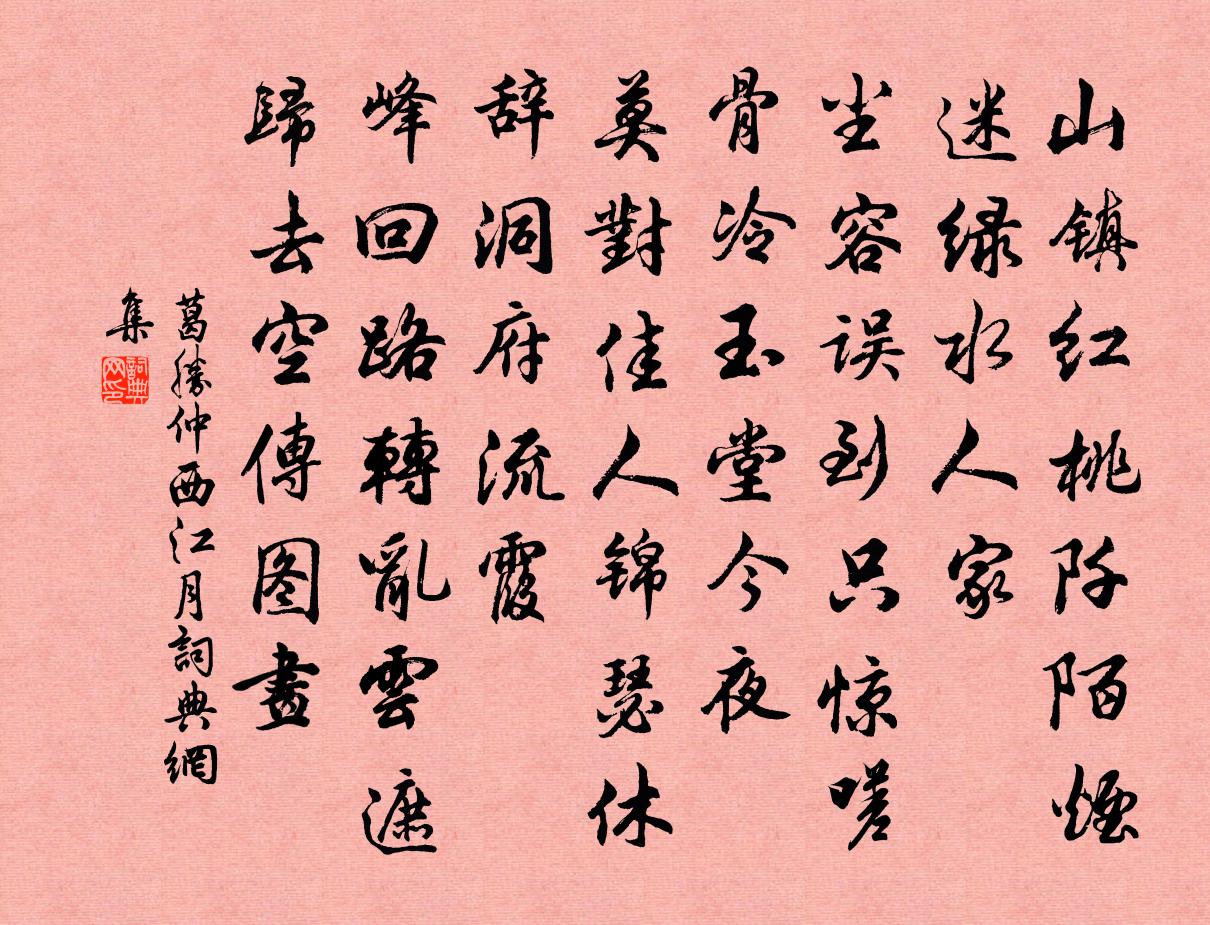 山镇红桃阡陌煙
迷绿水人家
尘容误到只惊嗟
骨冷玉堂今夜
莫對佳人锦瑟休
辞洞府流霞
峰回路轉亂雲遮
歸去空傳图畫
葛勝仲西江月詞典網
集
詞典网印